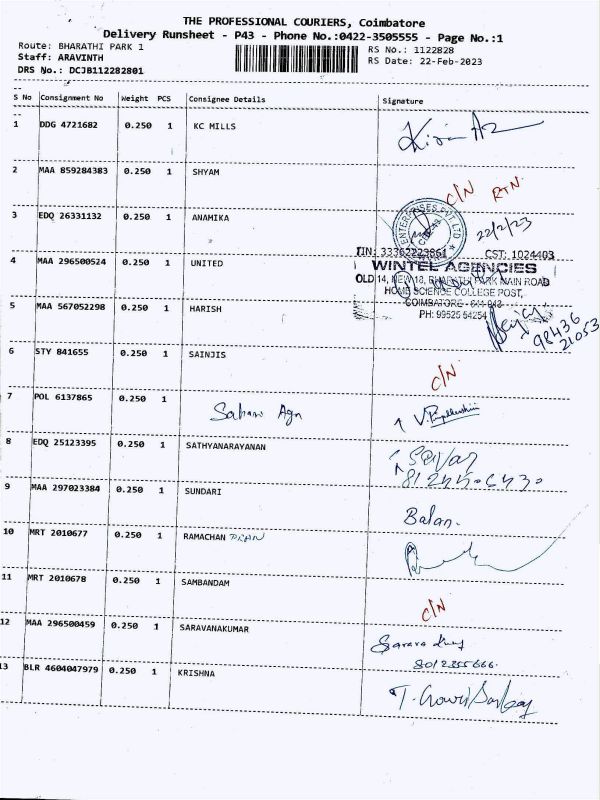 THE PROFESSIONAL COURIERS, Coimbatore
Delivery Runsheet - P43 - Phone No.:0422-3505555 - Page No.:1
Route: BHARATHI PARK 1 RS No.: 1122828
Staff: ARAVINTH RS Date: 22-Feb-2023
DRS No.: DCJB112282801
S No Consignment No Weight PCS Consignee Details Signature
1 DDG 4721682 0.250 1 KC MILLS
2 MAA 859284383 0.250 1 SHYAM C/N RTN
3 EDQ 26331132 0.250 1 ANAMIKA 22/2/23
ENTERPRISES PVT. LTD
TIN: 33362223861 CST: 1024403
4 MAA 296500524 0.250 1 UNITED
WINTEL AGENCIES
OLD 14, NEW 18, BHARATHI PARK MAIN ROAD
HOME SCIENCE COLLEGE POST,
COIMBATORE - 641 043
PH: 99525 54254
5 MAA 567052298 0.250 1 HARISH
98436
21053
6 STY 841655 0.250 1 SAINJIS C/N
7 POL 6137865 0.250 1
8 EDQ 25123395 0.250 1 SATHYANARAYANAN
9 MAA 297023384 0.250 1 SUNDARI Balan.
10 MRT 2010677 0.250 1 RAMACHAN
11 MRT 2010678 0.250 1 SAMBANDAM C/N
12 MAA 296500459 0.250 1 SARAVANAKUMAR
8012355666.
13 BLR 4604047979 0.250 1 KRISHNA